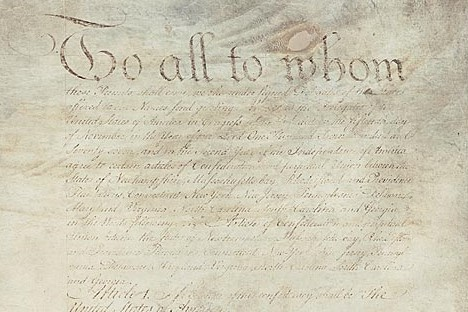 To all to whom
these Presents shall come, we the under signed Delegates of the States
affixed to our Names send greeting. Whereas the Delegates of the
United States of America in Congress assembled did on the fifteenth day
of November in the Year of our Lord One Thousand Seven Hundred and
Seventy seven, and in the Second Year of the Independence of America
agree to certain articles of Confederation and perpetual Union between the
States of Newhampshire, Massachusetts-bay, Rhodeisland and Providence
Plantations, Connecticut, New York, New Jersey, Pennsylvania, Delaware,
Maryland, Virginia, North-Carolina, South-Carolina and Georgia
in the Words following, viz. Articles of Confederation and perpetual
Union between the States of Newhampshire, Massachusetts-bay, Rhodeisland
and Providence Plantations, Connecticut, New-York, New-Jersey, Pennsyl-
vania, Delaware, Maryland, Virginia, North-Carolina, South-Carolina
and Georgia.
Article I. The Stile of this confederacy shall be "The
United States of America."